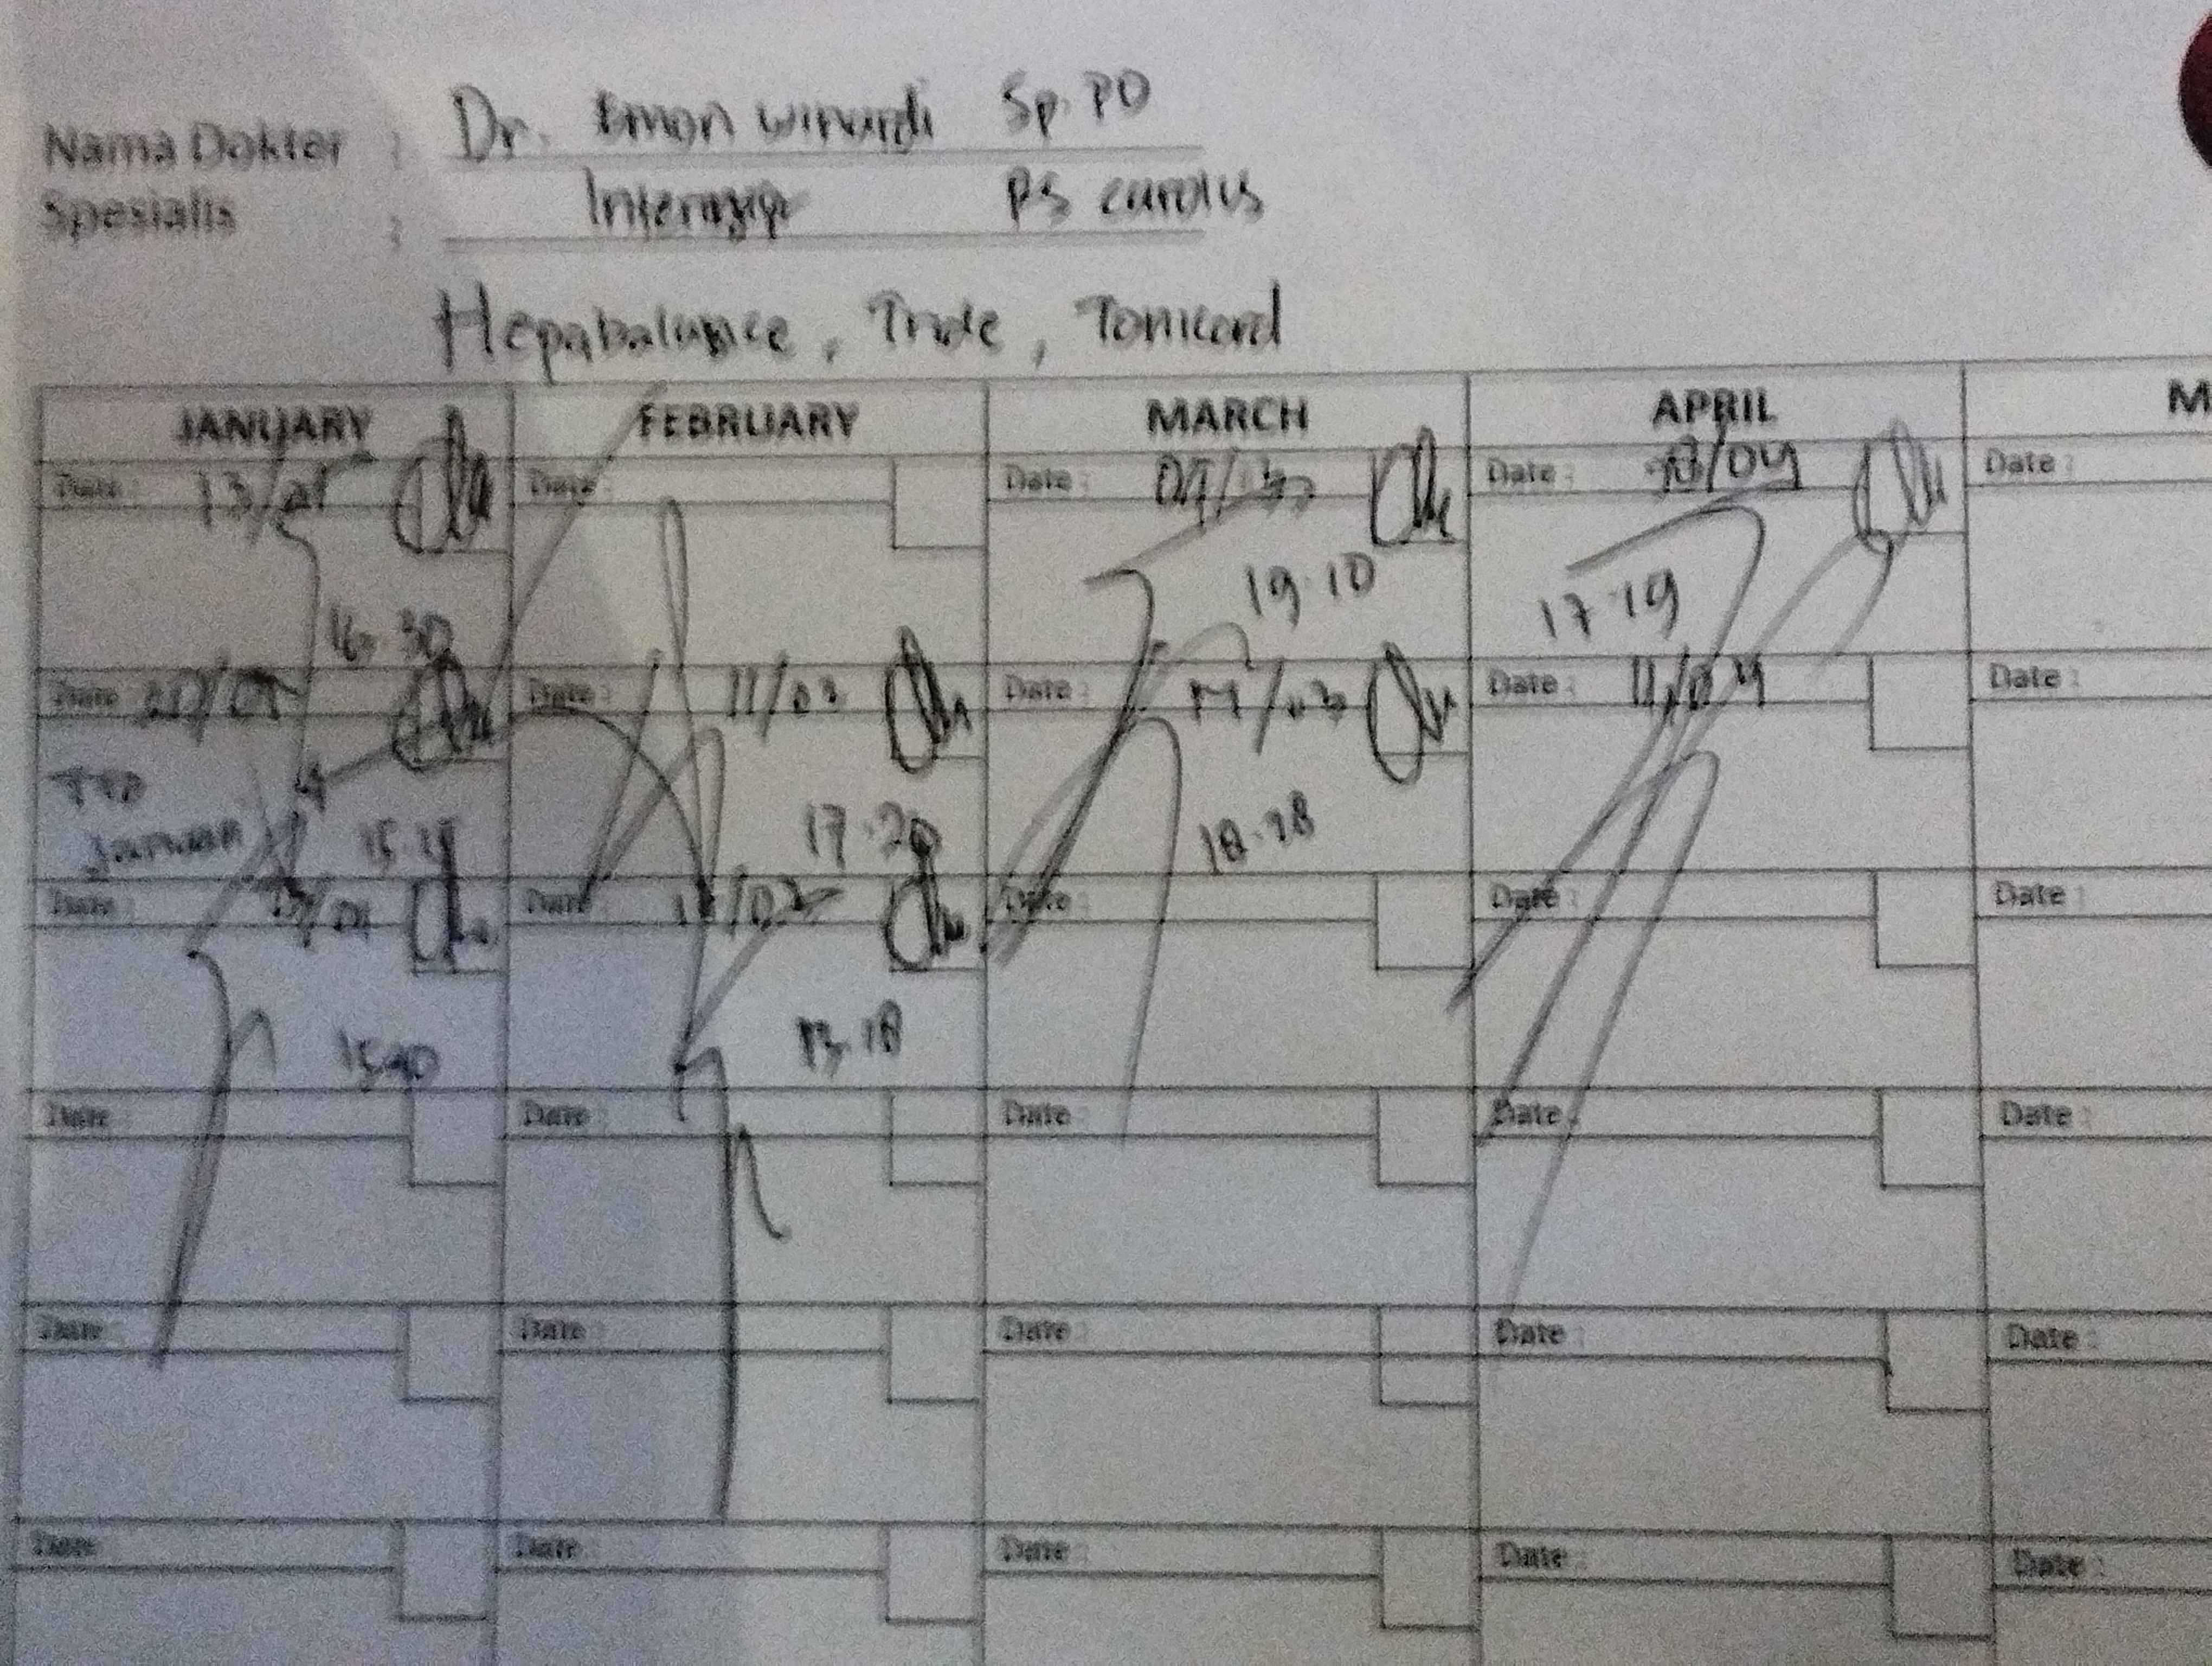 Nama Dokter : Dr. Emon Winardi Sp. PD
Spesialis :
Hepabalance, Tride, Tomicord
JANUARY FEBRUARY MARCH APRIL M
Date : 13/01 Date : Date : Date : /04 Date :
16.30 19.10 17.19
Date : 20/01 Date : 11/02 Date : /03 Date : 11/04 Date :
TTD
Januari 15.15 17.20 18.28
Date : /01 Date : /02 Date : Date : Date :
13.18
Date : Date : Date : Date : Date :
Date : Date : Date : Date : Date :
Date : Date : Date : Date : Date :